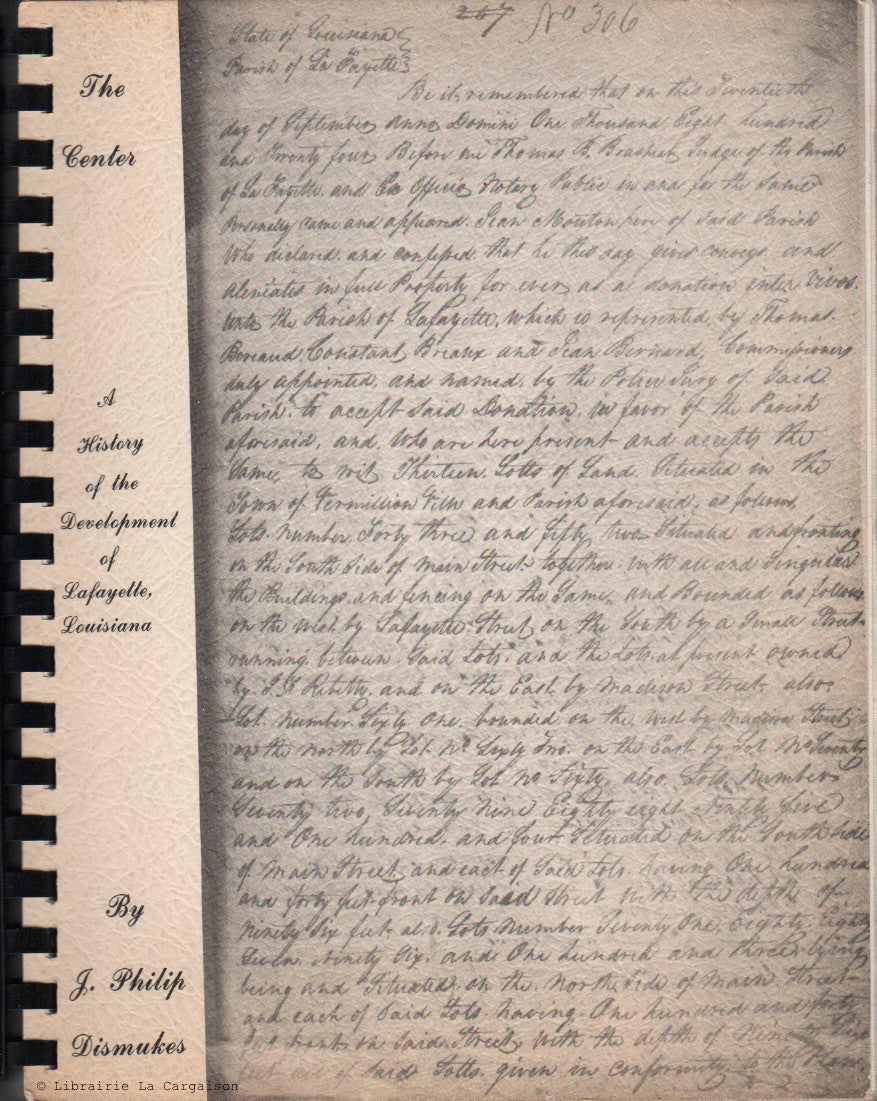 The
Center
A
History
of the
Development
of
Lafayette,
Louisiana
By
J. Philip
Dismukes
267 No 306
State of Louisiana
Parish of La Fayette
Be it, remembered that on this Twentieth
day of September Anno Domini One Thousand Eight hundred
and Twenty four Before me Thomas B. Brashear Judge of the Parish
of La Fayette and Ex Officio Notary Public in and for the Same
Personally came and appeared Jean Mouton pere of said Parish
Who declared and confessed that he this day gives conveys and
alienates in full Property for ever as a donation inter Vivos
the Parish of Lafayette, which is represented by Thomas
Constant Breaux and Jean Bernard, Commissioners
duly appointed and named by the Police Jury of Said
Parish to accept said Donation in favor of the Parish
aforesaid, and Who are here present and accepts the
Same, to wit Thirteen Lotts of Land Situated in the
Town of Vermillion Ville and Parish aforesaid, as follows,
Lots Number Forty three and fifty two Situated and fronting
on the South Side of Main Street together with all and Singular
the Buildings and fencing on the Same, and Bounded as follows
on the West by Lafayette Street on the South by a Small Street
running between Said Lots and the Lots at present owned
by and on the East by Madison Street also
Lot Number Sixty One bounded on the West by Madison Street
on the North by Lot No Sixty Two on the East by Lot No Seventy
and on the South by Lot No Sixty, also Lots Number
Seventy two, Seventy Nine Eighty eight Ninety five
and One hundred and four Situated on the South Side
of Main Street and each of Said Lots having One hundred
and forty feet front on Said Street With the depth of
Ninety Six feet also Lots Number Seventy One Eighty Eighty
Seven Ninety Six and One hundred and three lying
being and Situated on the North Side of Main Street
and each of Said Lots having One hundred and forty
front on Said Street With the depth of Ninety
of Said Lotts given in conformity to the Plan
© Librairie La Cargaison